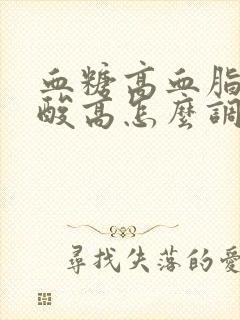 血糖高血脂
酸高怎麼調
尋找失落的愛